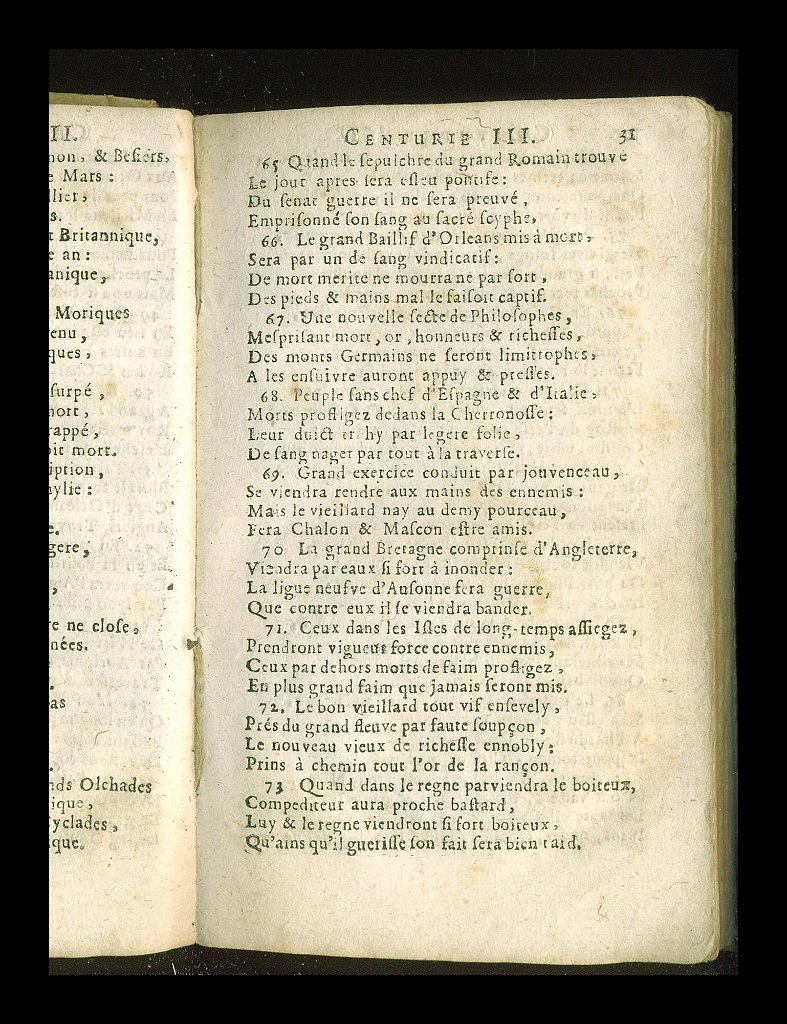 II.
non, & Besiers,
e Mars :
llier,
s.
t Britannique,
e an :
anique,
Moriques
enu,
ques,
surpé,
mort,
rappé,
oit mort.
iption,
ylie :
e.
gere,
,
re ne close,
nées.
.
as
.
nds Olchades
ique,
yclades,
que.
CENTURIE III. 31
65 Quand le sepulchre du grand Romain trouvé
Le jour apres sera esleu pontife :
Du senat guerre il ne sera preuvé,
Emprisonné son sang au sacré scyphe.
66. Le grand Baillif d'Orleans mis à mort,
Sera par un de sang vindicatif :
De mort merite ne mourra ne par sort,
Des pieds & mains mal le faisoit captif.
67. Une nouvelle secte de Philosophes,
Mesprisant mort, or, honneurs & richesses,
Des monts Germains ne seront limitrophes,
A les ensuivre auront appuy & presses.
68. Peuple sans chef d'Espagne & d'Italie,
Morts profligez dedans la Cherronosse :
Leur duict tr hy par legere folie,
De sang nager par tout à la traverse.
69. Grand exercice conduit par jouvenceau,
Se viendra rendre aux mains des ennemis :
Mais le vieillard nay au demy pourceau,
Fera Chalon & Mascon estre amis.
70 La grand Bretagne comprinse d'Angleterre,
Viendra par eaux si fort à inonder :
La ligue neufve d'Ausonne fera guerre,
Que contre eux il se viendra bander.
71. Ceux dans les Isles de long-temps assiegez,
Prendront vigueur force contre ennemis,
Ceux par dehors morts de faim profligez,
En plus grand faim que jamais seront mis.
72. Le bon vieillard tout vif ensevely,
Prés du grand fleuve par faute soupçon,
Le nouveau vieux de richesse ennobly :
Prins à chemin tout l'or de la rançon.
73 Quand dans le regne parviendra le boiteux,
Compediteur aura proche bastard,
Luy & le regne viendront si fort boiteux,
Qu'ains qu'il guerisse son fait sera bien tard.